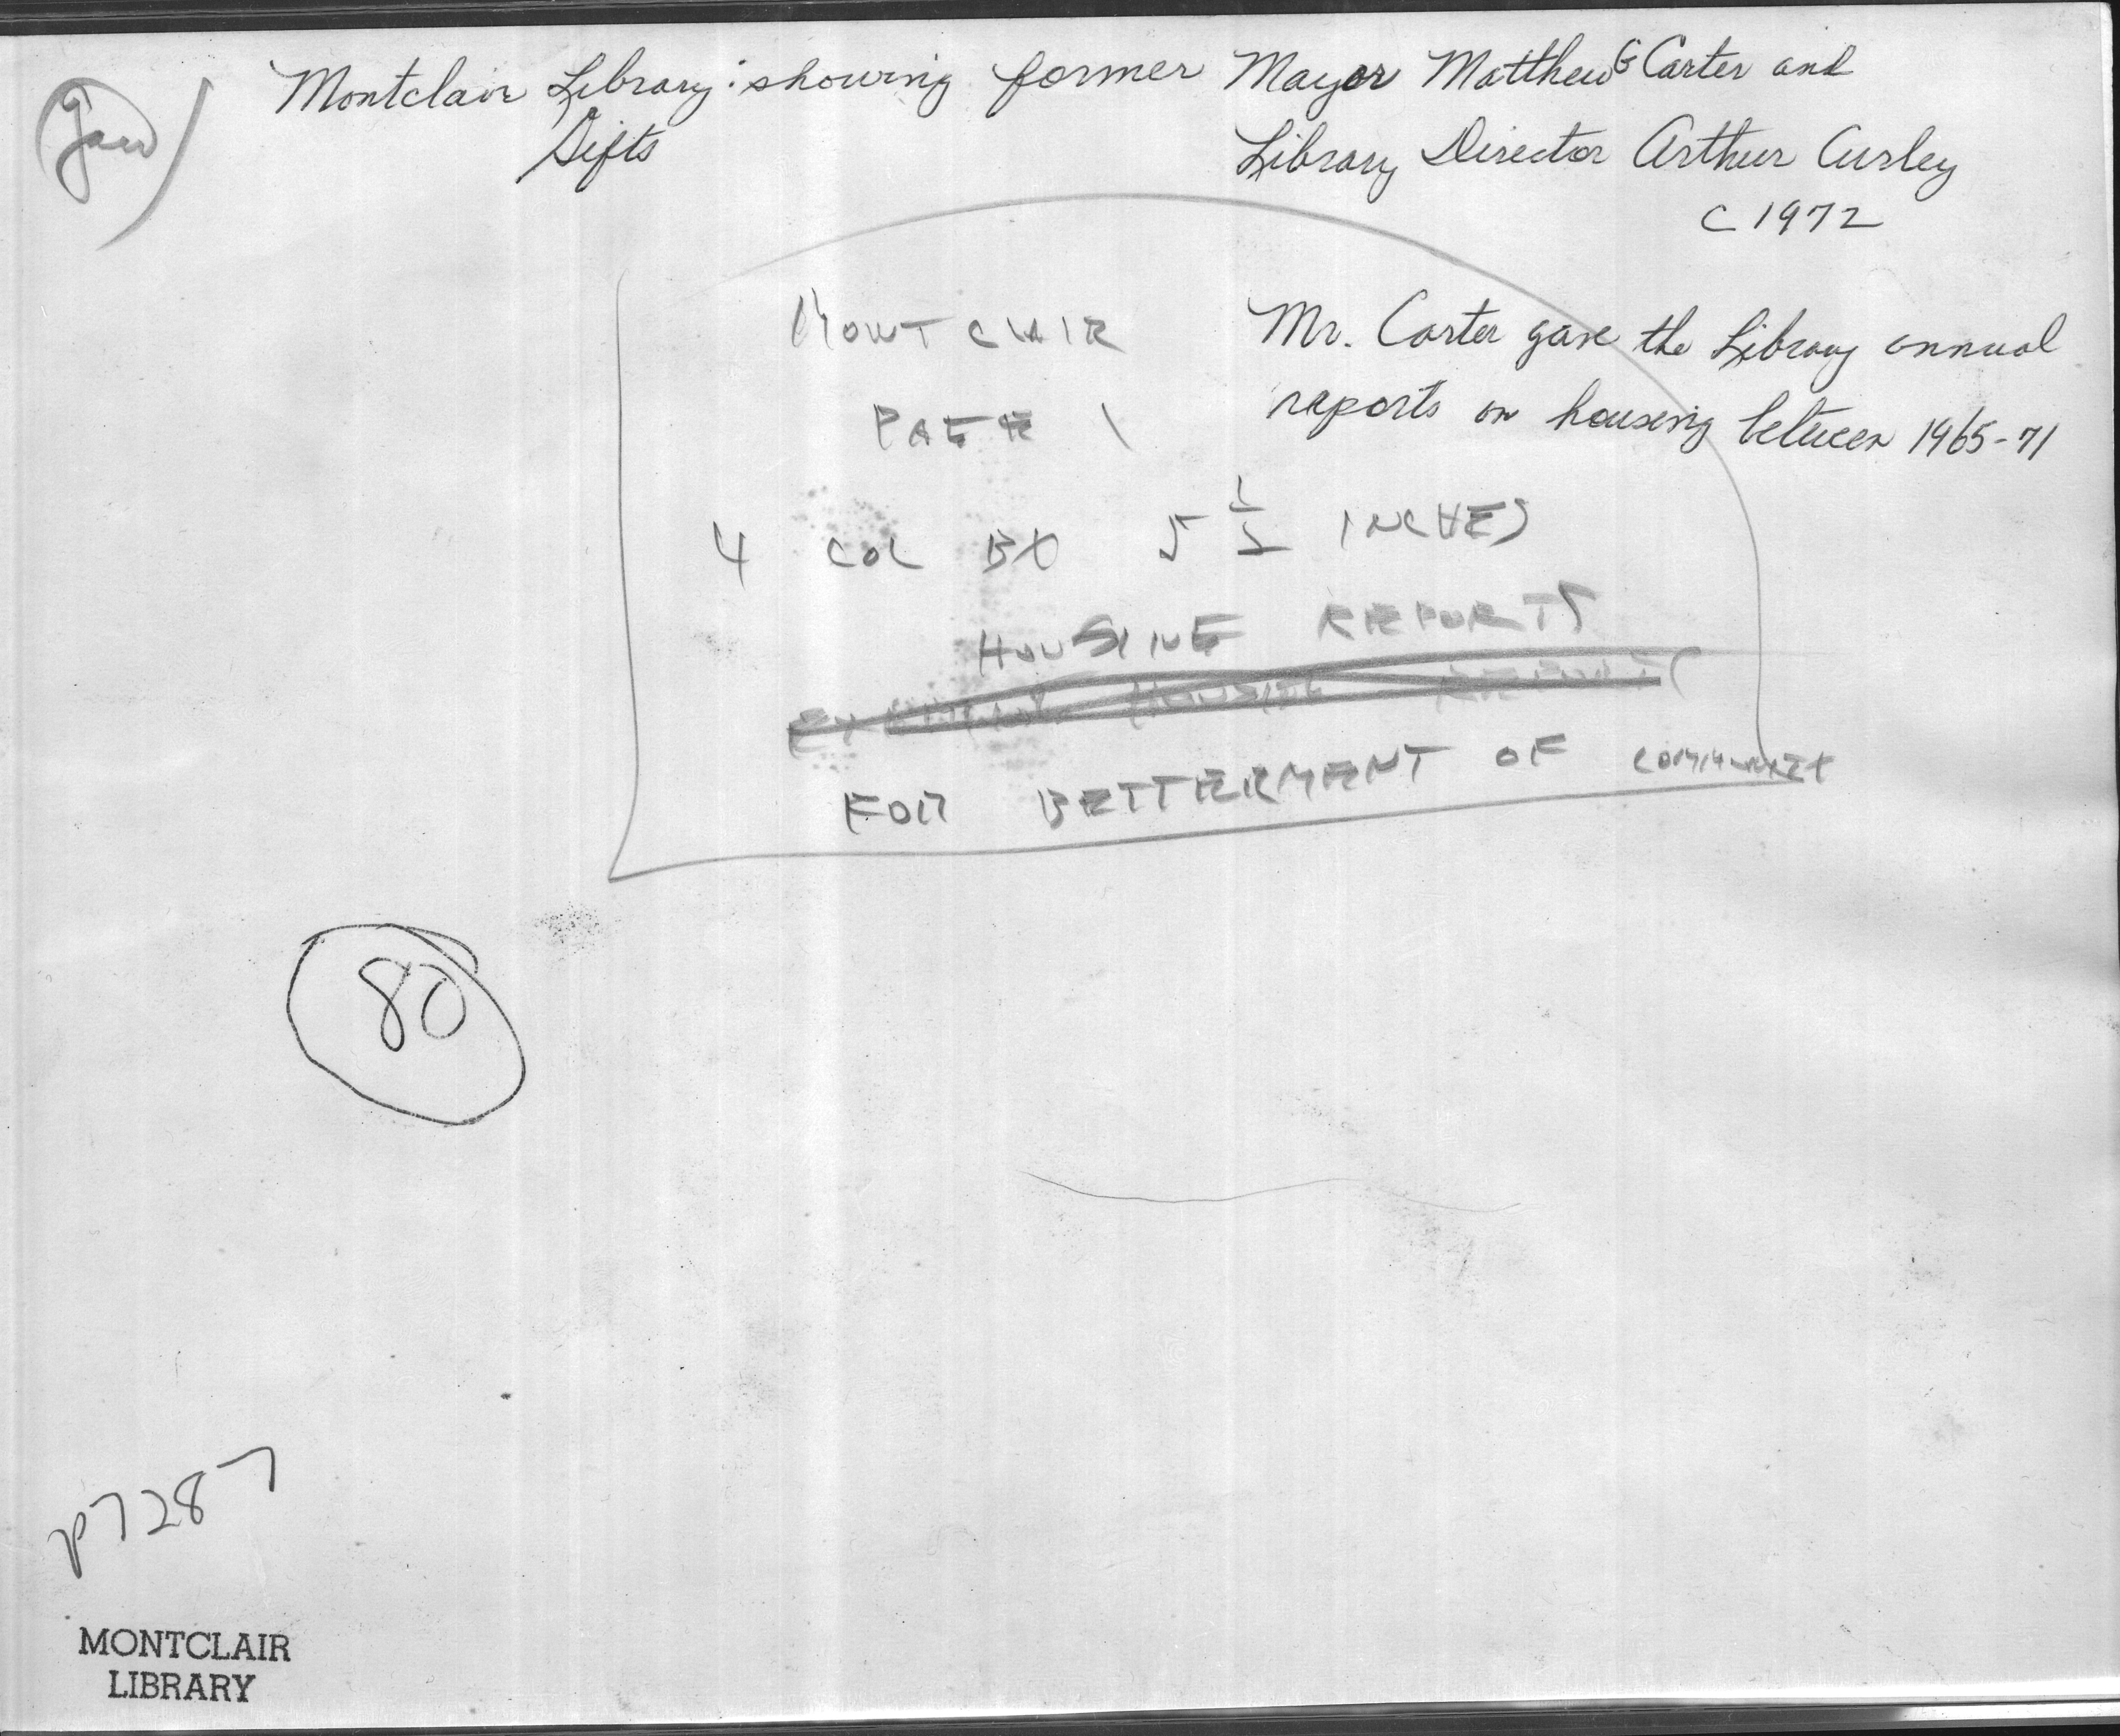 Montclair Library: showing former Mayor Matthew G Carter and
Gifts
Library Director Arthur Curley
c 1972
MONTCLAIR
PAGE 1
Mr. Carter gave the Library annual
reports on housing between 1965-71
4 COL BY 5 1/2 INCHES
HOUSING REPORTS
HOUSING REPORTS
FOR BETTERMENT OF COMMUNITY
80
P7287
MONTCLAIR
LIBRARY